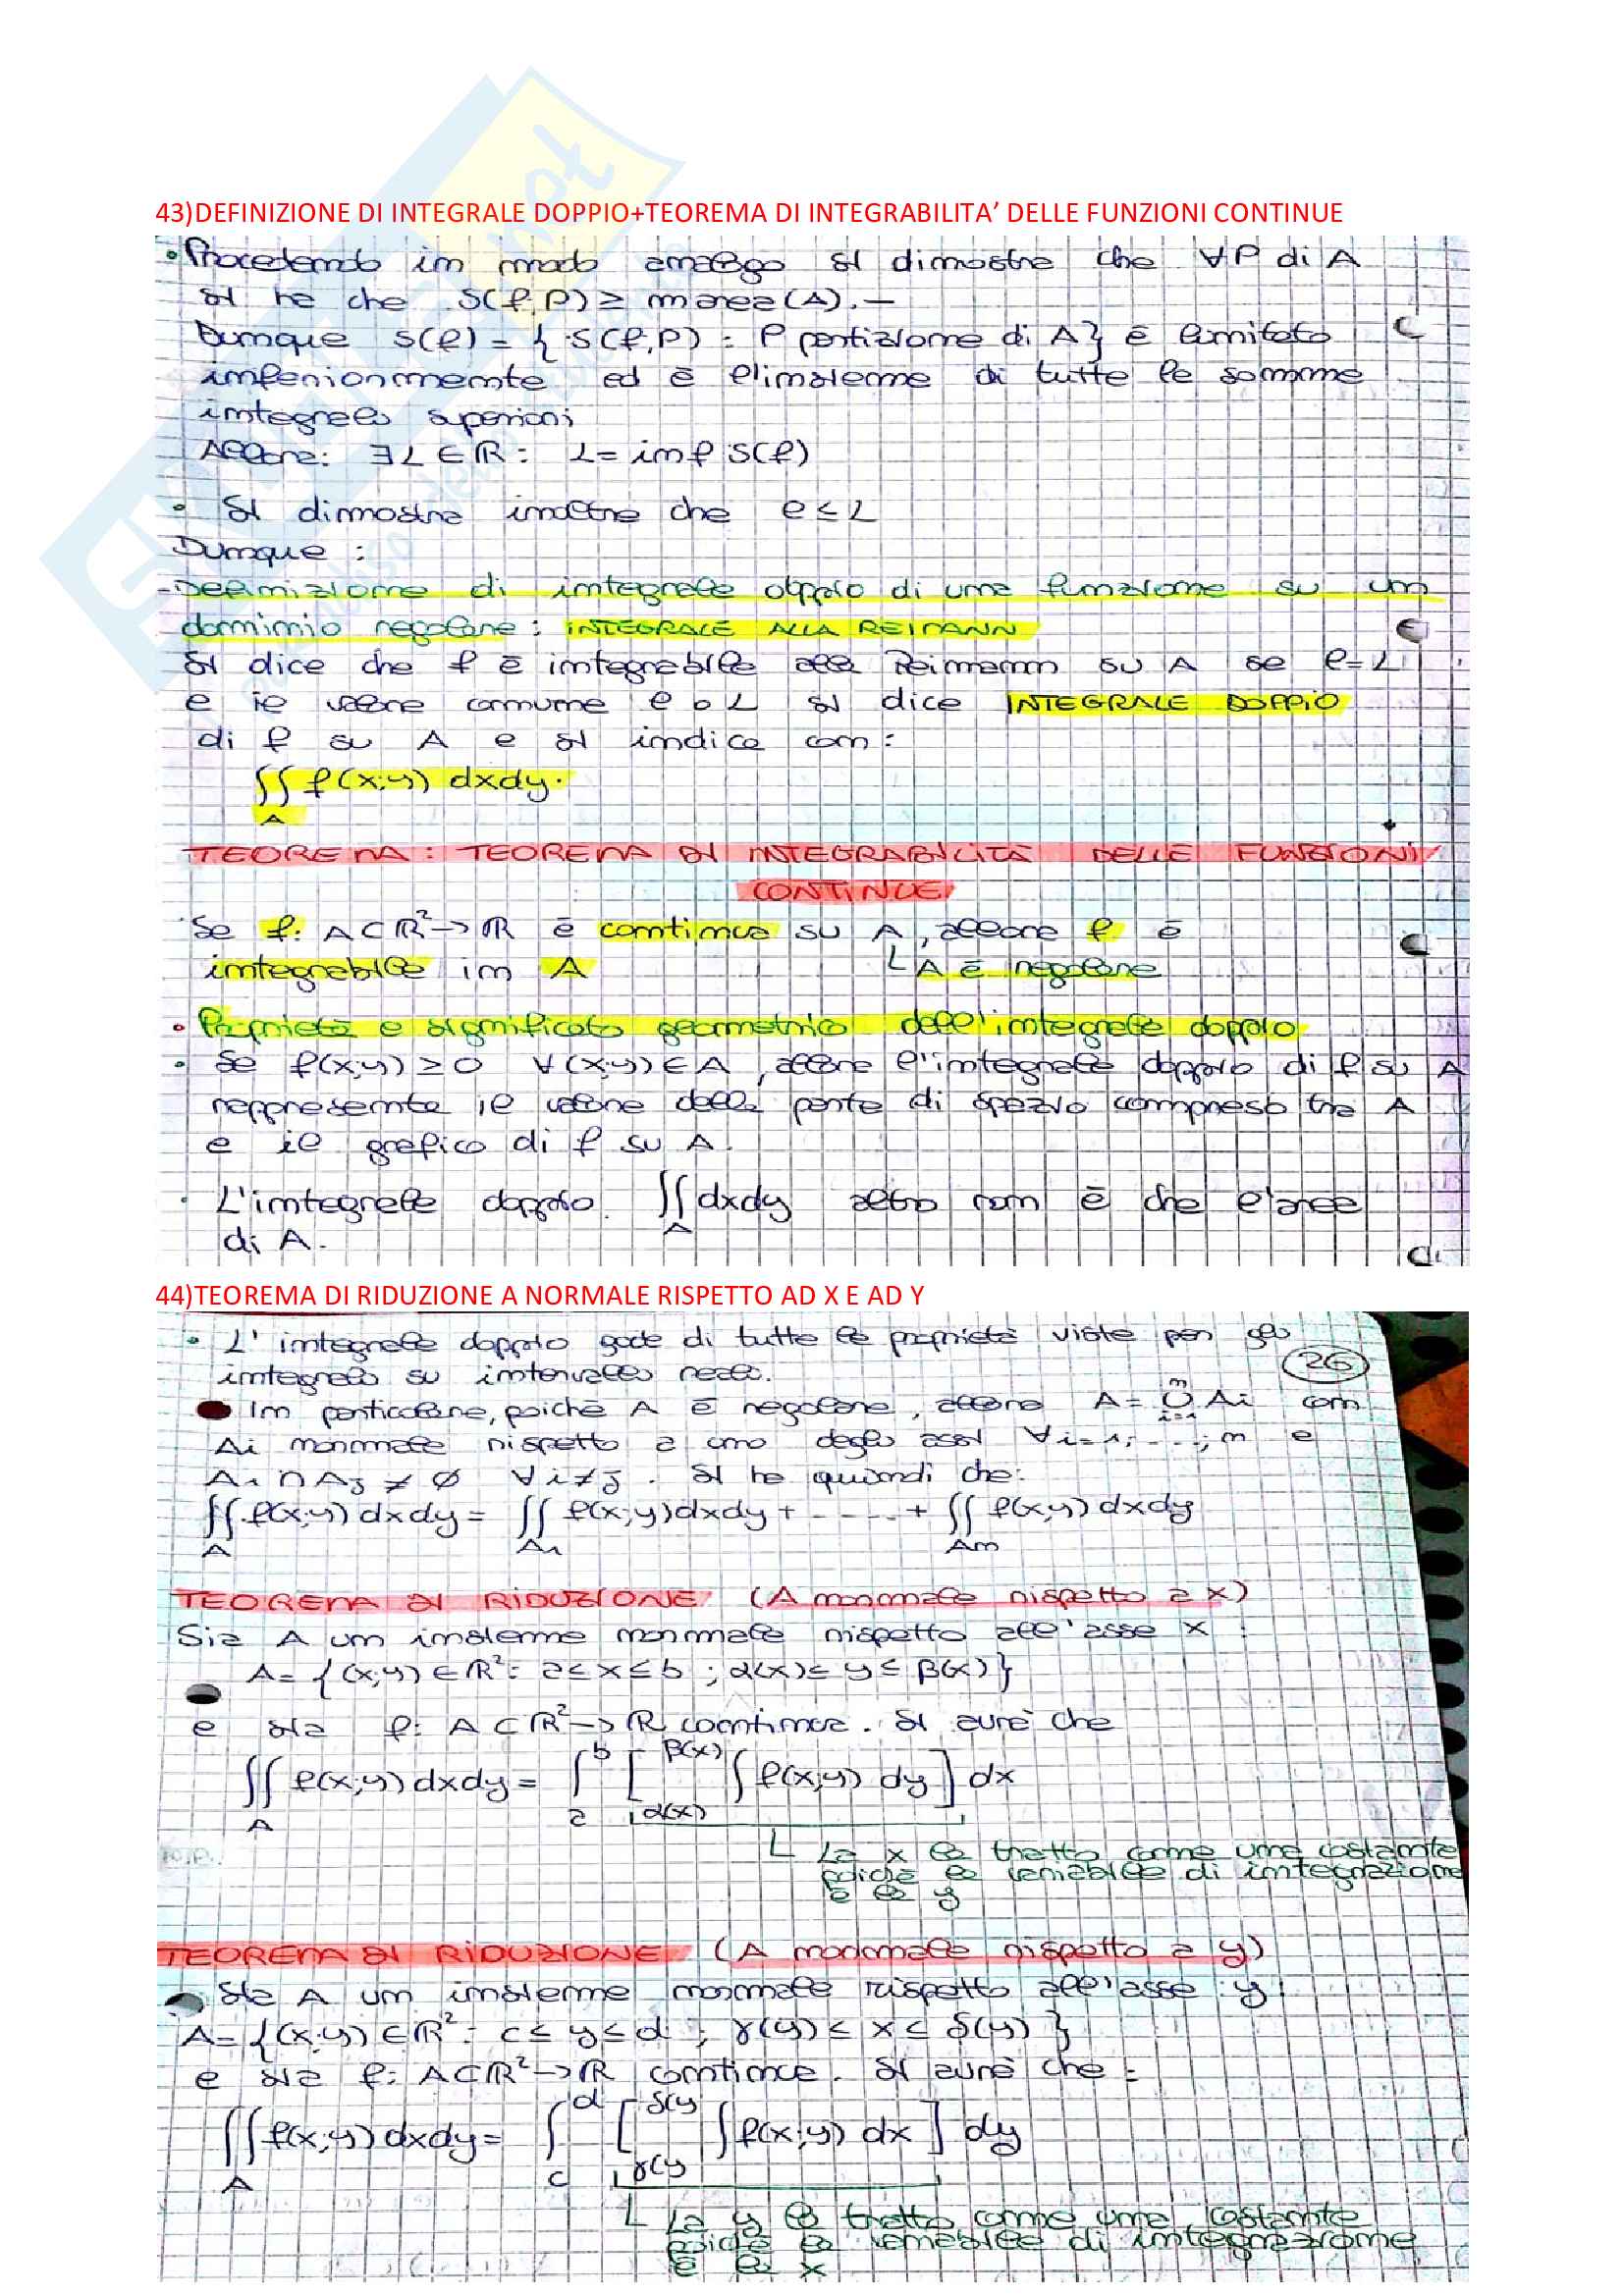 43)DEFINIZIONE DI INTEGRALE DOPPIO+TEOREMA DI INTEGRABILITA’ DELLE FUNZIONI CONTINUE
• Procedendo in modo analogo si dimostra che ∀P di A
si ha che S(f,P) ≥ m area(A).—
Dunque S(f) = { S(f,P) : P partizione di A} è limitato
inferiormente ed è l'insieme di tutte le somme
integrali superiori
Allora: ∃ L ∈ ℝ : L = inf S(f)
• Si dimostra inoltre che l ≤ L
Dunque :
-Definizione di integrale doppio di una funzione su un
dominio regolare: INTEGRALE ALLA REIMANN
Si dice che f è integrabile alla Reimann su A se l = L
e il valore comune l o L si dice INTEGRALE DOPPIO
di f su A e si indica con:
∬ f(x;y) dxdy.
A
TEOREMA: TEOREMA DI INTEGRABILITÀ DELLE FUNZIONI
CONTINUE
Se f: A⊂ℝ²→ℝ è continua su A, allora f è
integrabile in A └ A è regolare
• Proprietà e significato geometrico dell'integrale doppio
• Se f(x;y) ≥ 0 ∀(x;y) ∈ A, allora l'integrale doppio di f su A
rappresenta il valore della parte di spazio compreso tra A
e il grafico di f su A.
• L'integrale doppio ∬ dxdy altro non è che l'area
A
di A.
44)TEOREMA DI RIDUZIONE A NORMALE RISPETTO AD X E AD Y
• L'integrale doppio gode di tutte le proprietà viste per gli
integrali su intervalli reali.
26
In particolare, poiché A è regolare, allora A = ⋃ⁿᵢ₌₁ Ai con
Ai normale rispetto a uno degli assi ∀i=1,....,n e
Ai ∩ Aj ≠ ∅ ∀i≠j. Si ha quindi che:
∬ f(x;y) dxdy = ∬ f(x;y)dxdy + ..... + ∬ f(x;y) dxdy
A A₁ An
TEOREMA DI RIDUZIONE (A normale rispetto a x)
Sia A un insieme normale rispetto all'asse x :
A= {(x;y) ∈ ℝ²: a ≤ x ≤ b ; α(x) ≤ y ≤ β(x)}
e sia f: A⊂ℝ²→ℝ continua. Si avrà che
∬ f(x;y) dxdy = ∫ᵇ [ β(x) ∫ f(x;y) dy ] dx
A a α(x)
└ La x la tratto come una costante
poiché la variabile di integrazione
è la y
TEOREMA DI RIDUZIONE (A normale rispetto a y)
Sia A un insieme normale rispetto all'asse y
A= {(x;y) ∈ ℝ²: c ≤ y ≤ d ; γ(y) ≤ x ≤ δ(y) }
e sia f: A⊂ℝ²→ℝ continua. Si avrà che :
∬ f(x;y) dxdy = ∫ᵈ [ δ(y ∫ f(x;y) dx ] dy
A c γ(y
└ La y la tratto come una costante
poiché la variabile di integrazione
è la x